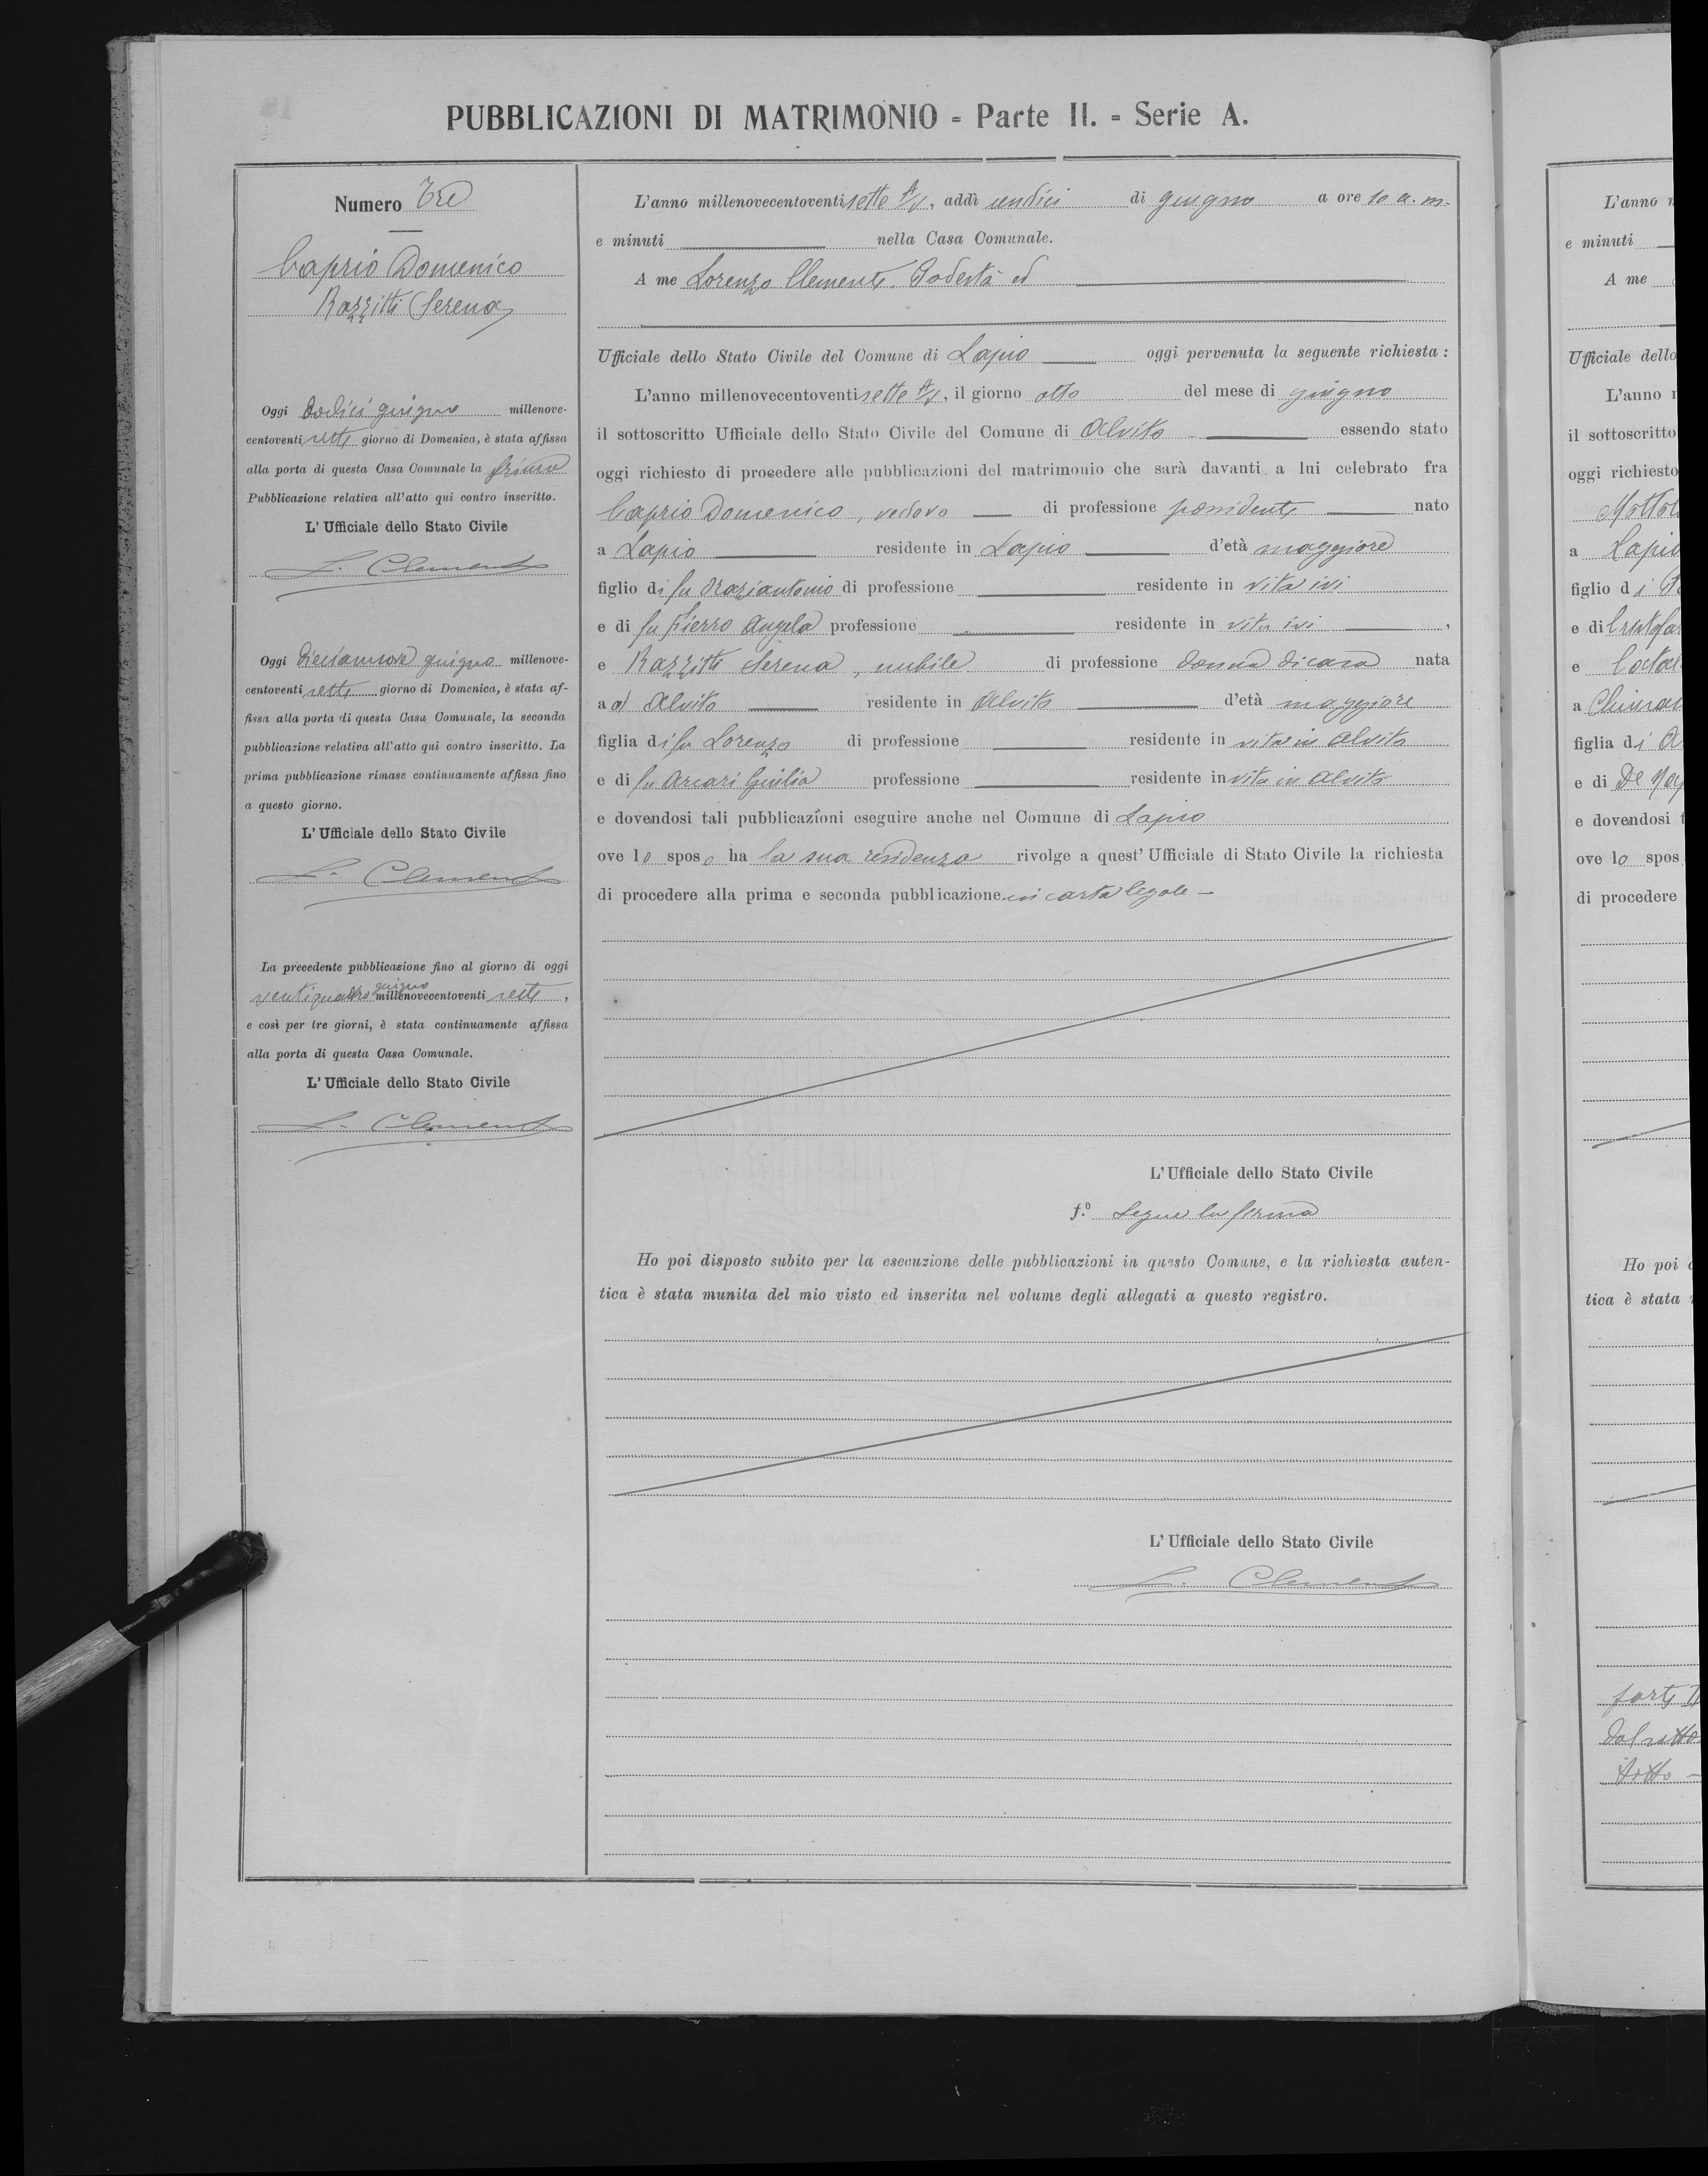 PUBBLICAZIONI DI MATRIMONIO - Parte II. - Serie A.
Numero Tre
Caprio Domenico
Razzitti Serena
Oggi dodici giugno millenove-
centoventi sette giorno di Domenica, è stata affissa
alla porta di questa Casa Comunale la prima
Pubblicazione relativa all'atto qui contro inscritto.
L'Ufficiale dello Stato Civile
L. Clemente
Oggi diciannove giugno millenove-
centoventi sette giorno di Domenica, è stata af-
fissa alla porta di questa Casa Comunale, la seconda
pubblicazione relativa all'atto qui contro inscritto. La
prima pubblicazione rimase continuamente affissa fino
a questo giorno.
L'Ufficiale dello Stato Civile
L. Clemente
La precedente pubblicazione fino al giorno di oggi
giugno
ventiquattro millenovecentoventi sette,
e così per tre giorni, è stata continuamente affissa
alla porta di questa Casa Comunale.
L'Ufficiale dello Stato Civile
L. Clemente
L'anno millenovecentoventi sette, addì undici di giugno a ore 10 a. m.
e minuti nella Casa Comunale.
A me Lorenzo Clemente Podestà ed
Ufficiale dello Stato Civile del Comune di Lapio oggi pervenuta la seguente richiesta:
L'anno millenovecentoventi sette, il giorno otto del mese di giugno
il sottoscritto Ufficiale dello Stato Civile del Comune di Alvito essendo stato
oggi richiesto di procedere alle pubblicazioni del matrimonio che sarà davanti a lui celebrato fra
Caprio Domenico, vedovo di professione possidente nato
a Lapio residente in Lapio d'età maggiore
figlio di fu Oraziantonio di professione residente in vita ivi
e di fu Fierro Angela professione residente in vita ivi,
e Razzitti Serena, nubile di professione donna di casa nata
a d Alvito residente in Alvito d'età maggiore
figlia di fu Lorenzo di professione residente in vita in Alvito
e di fu Arcari Giulia professione residente in vita in Alvito
e dovendosi tali pubblicazioni eseguire anche nel Comune di Lapio
ove lo sposo ha la sua residenza rivolge a quest'Ufficiale di Stato Civile la richiesta
di procedere alla prima e seconda pubblicazione in carta legale -
L'Ufficiale dello Stato Civile
f.o Segue la firma
Ho poi disposto subito per la esecuzione delle pubblicazioni in questo Comune, e la richiesta auten-
tica è stata munita del mio visto ed inserita nel volume degli allegati a questo registro.
L'Ufficiale dello Stato Civile
L. Clemente
L'anno
e minuti
A me
Ufficiale dello
L'anno
il sottoscritto
oggi richiesto
a Lapio
figlio di
e di
e
a
figlia di
e di De
e dovendosi
ove lo spos
di procedere
Ho poi
tica è stata